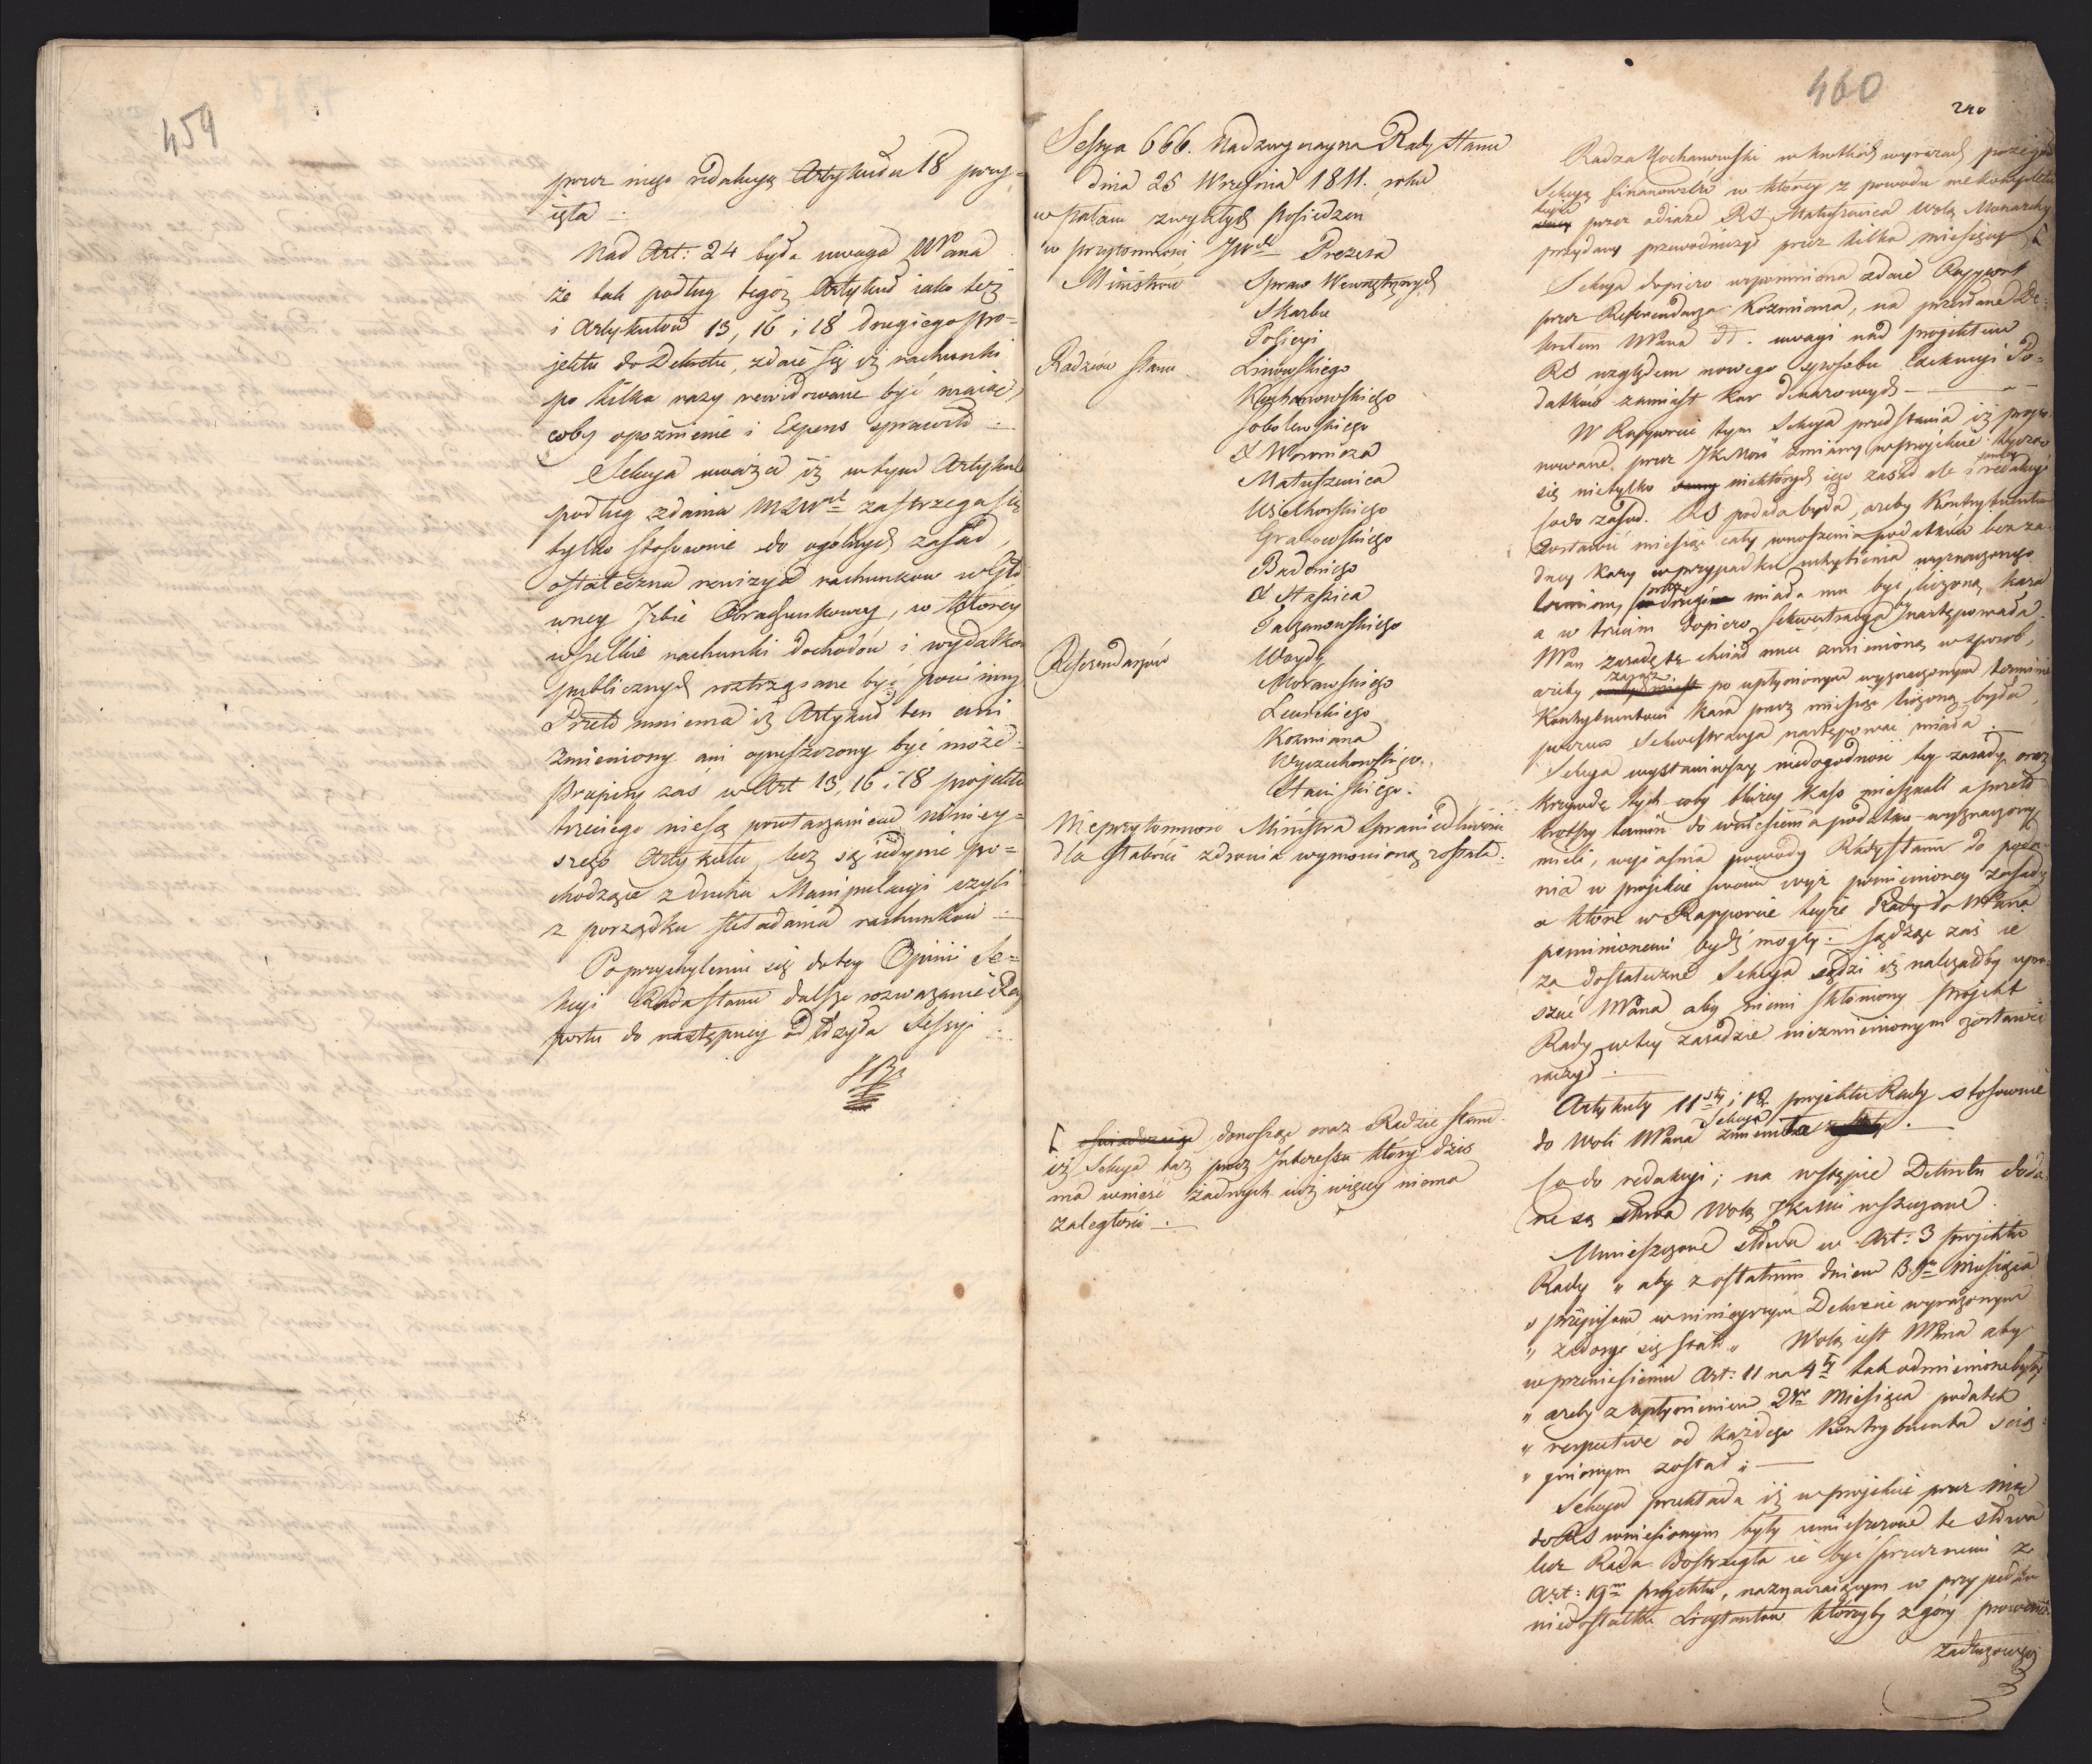 459
przez niego redakcyą Artykułu 18 przy-
ięta.
Nad Art: 24 była uwaga NPana
że tak podług tegoż Artykuł iako też
i Artykułów 13, 16 i 18 drugiego pro-
jektu do Dekretu, zdaie się iż rachunki
po kilka razy rewidowane być maiąc,
coby opoznienie i Expens sprawiło.
Sekcya uważa iż w tym Artykule
podług zdania zastrzega się
tylko stosownie do ogólnych zasad,
ostateczna rewizya rachunków w Głó
wney Izbie Obrachunkowey, w którey
wszelkie rachunki dochodów i wydatków
publicznych roztrząsane być powinny
Przeto mniema iż Artykuł ten ani
zmieniony ani opuszczony być może.
Przepisy zaś w Art 13, 16 i 18 projektu
trzeciego nie są powtarzaniem niniey-
szego Artykułu, lecz są iedynie po-
chodzące z ducha Manipulacyi czyli
z porządku składania rachunków.
Po przychyleniu się do tey Opinii Se-
kcyi Rada Stanu dalsze rozważanie Rap
portu do następney odłożyła Sessyi.
460
240
Sessya 666. Nadzwyczayna Rady Stanu
dnia 25 Września 1811. roku
w pałacu zwykłych posiedzeń
w przytomności JWch Prezesa
Ministrów Spraw Wewnętrznych
Skarbu
Policyi
Radzców Stanu Linowskiego
Kochanowskiego
Sobolewskiego
X Woronicza
Matuszewica
Wielhorskiego
Grabowskiego
Badeniego
X Staszica
Potkanowskiego
Referendarzów Woydy
Morawskiego
Lewickiego
Kozmiana
Wyczechowskiego
Stawiskiego.
Nieprzytomność Ministra Sprawiedliwości
dla słabości zdrowia wymówioną została.
oświadczaiąc, donosząc oraz Radzie Stanu.
iż Sekcya taż prócz Interessu który dziś
ma wnieść żadnych iuż więcey niema
zaległości.
Radzca Kochanowski w krotkich wyrazach pożegnał
Sekcyą Finansowską w którey z powodu niekompletu
teyże przez odiazd RS Matuszewica Wolą Monarchy
przydany przewodniczył przez kilka miesięcy
Sekcya dopiero wspomniona zdaie Rapport
przez Referendarza Kozmiana, na przesłane De-
kretem NPana dd. uwagi nad projektem
RS względem nowego sposobu Exekucyi Po-
datków zamiast kar dekarowych
W Rapporcie tym Sekcya przedstawia iż propo-
nowane przez JKMość zmiany w projekcie tyczą
się nietylko niektórych iego zasad ale i samey redakcyi
Co do zasad. RS podała była, ażeby Kontrybuentom
zostawić miesiąc cały wnoszenia podatków bez ża-
dney kary w przypadku uchybienia wyznaczonego
terminu, w drugim miała mu być liczoną kara
a w trzecim dopiero Sekwestracya następowała.
NPan zasadę tę chciał mieć zmienioną w sposób,
ażeby zaraz po upłynionym wyznaczonym terminie
Kontrybuentowi kara przez miesiąc liczoną była,
poczem Sekwestracya następować miała.
Sekcya wystawiwszy niedogodność tey zasady, oraz
krzywdę tych coby bliżey kass mieszkali a przeto
krótszy termin do wniesienia podatku wyznaczony
mieli, wyiaśnia powody Rady Stanu do poda-
nia w projekcie swoim wyż pomienioney zasady
a które w Rapporcie teyże Rady do NPana
pominionemi bydź mogły. Sądząc zaś ie
za dostateczne Sekcya sądzi iż należałoby upra-
szać NPana aby niemi skłoniony projekt
Rady w tey zasadzie niezmienionym zostawić
raczył.
Artykuły 11sty i 12 projektu Rady stosownie
do Woli NPana Sekcya zmieniła.
Co do redakcyi; na wstępie Dekretu doda-
ne są słowa Wolą JKMci wskazane.
Umieszczone słowa w Art: 3 projektu
Rady „ aby z ostatnim dniem 3go Miesiąca
„ przepisom w ninieyszym Dekrecie wyrażonym
„ zadosyć się stało „ Wolą iest NPana aby
w przeniesieniu Art: 11 na 4ty tak odmienione były
„ ażeby z upłynieniem 2go Miesiąca podatek
„ respective od każdego Kontrybuenta ścią-
„ gnionym został „
Sekcya przekłada iż w projekcie przez nią
do RS wniesionym były umieszczone te słowa
lecz Rada dostrzegła ie być przeciwnemi z
Art: 19m projektu, naznaczaiącym w przypadku
niedostatku Licytantów któryby z góry